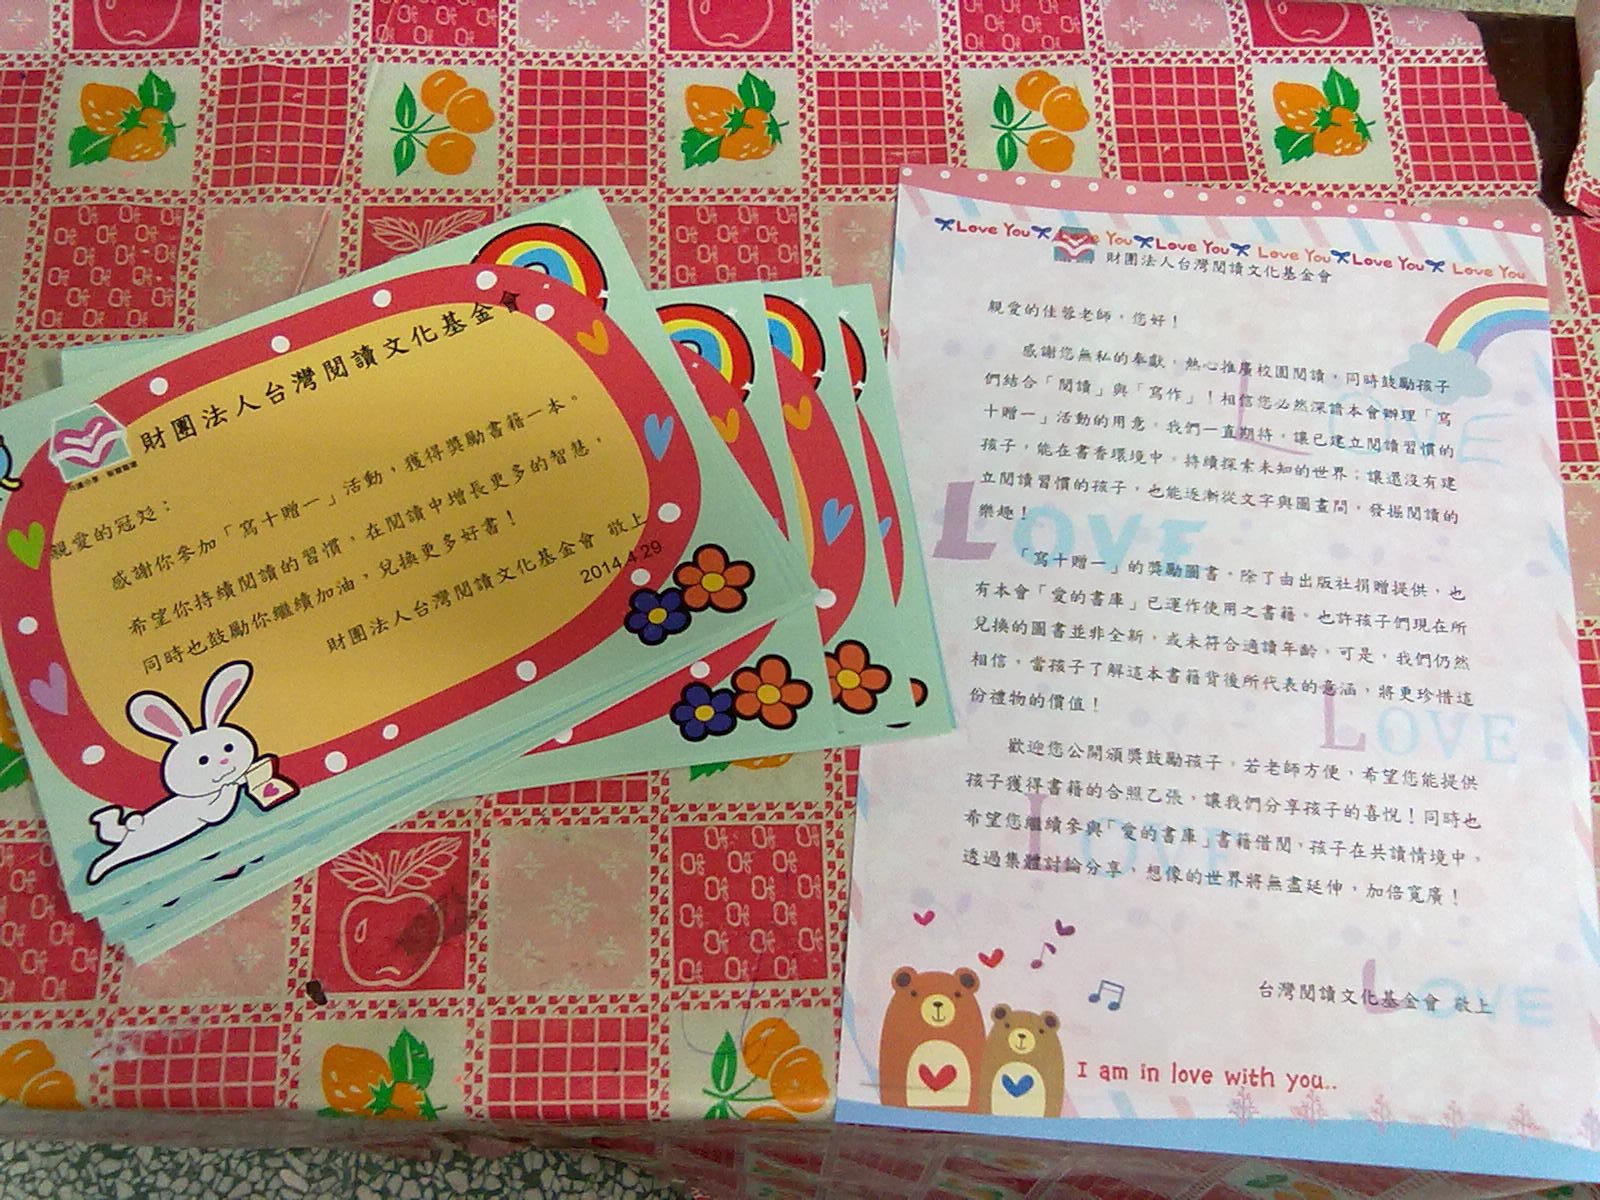 財團法人台灣閱讀文化基金會
親愛的冠
感謝你參加「寫十贈一」活動，獲得獎勵書籍一本。
希望你持續閱讀的習慣，在閱讀中增長更多的智慧，
同時也鼓勵你繼續加油，兌換更多好書！
財團法人台灣閱讀文化基金會 敬上
2014.4.29
Love You Love You Love You Love You Love You
財團法人台灣閱讀文化基金會
親愛的佳蓉老師，您好！
感謝您無私的奉獻，熱心推廣校園閱讀，同時鼓勵孩子
們結合「閱讀」與「寫作」！相信您必然深諳本會辦理「寫
十贈一」活動的用意，我們一直期待，讓已建立閱讀習慣的
孩子，能在書香環境中，持續探索未知的世界；讓還沒有建
立閱讀習慣的孩子，也能逐漸從文字與圖畫間，發掘閱讀的
樂趣！
「寫十贈一」的獎勵圖書，除了由出版社捐贈提供，也
有本會「愛的書庫」已運作使用之書籍。也許孩子們現在所
兌換的圖書並非全新，或未符合適讀年齡，可是，我們仍然
相信，當孩子了解這本書籍背後所代表的意涵，將更珍惜這
份禮物的價值！
歡迎您公開頒獎鼓勵孩子，若老師方便，希望您能提供
孩子獲得書籍的合照乙張，讓我們分享孩子的喜悅！同時也
希望您繼續參與「愛的書庫」書籍借閱，孩子在共讀情境中，
透過集體討論分享，想像的世界將無盡延伸，加倍寬廣！
台灣閱讀文化基金會 敬上
LOVE
LOVE
LOVE
LOVE
LOVE
I am in love with you..